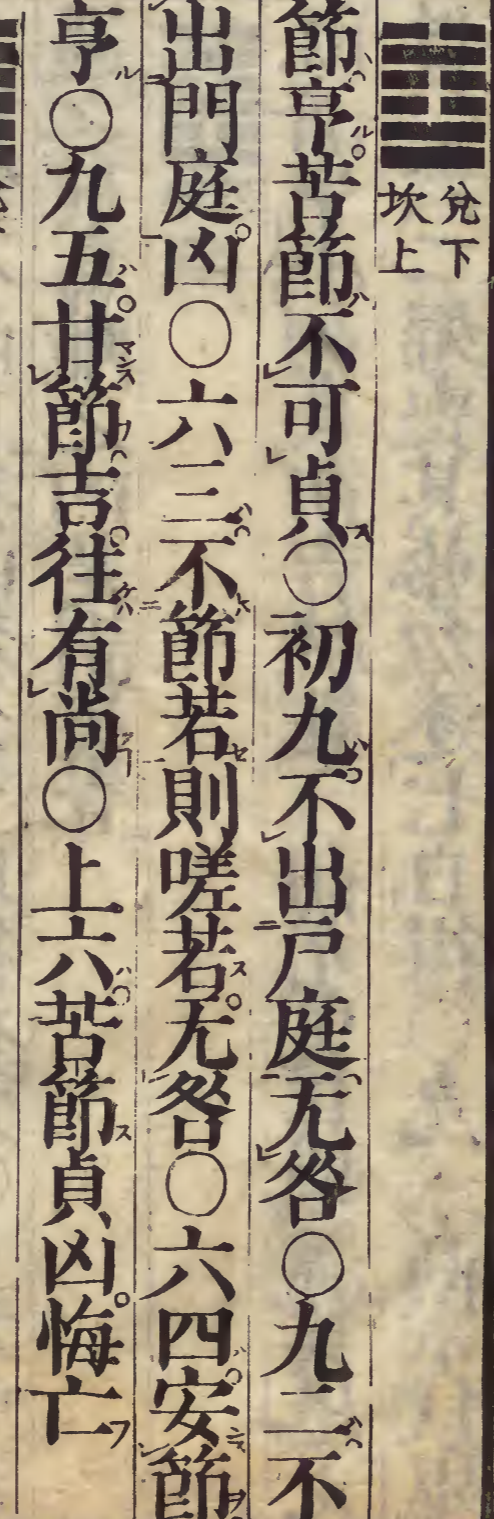 兌下
坎上
節亨苦節不可貞〇初九不出戸庭无咎〇九二不
出門庭凶〇六三不節若則嗟若无咎〇六四安節
亨〇九五甘節吉往有尚〇上六苦節貞凶悔亡